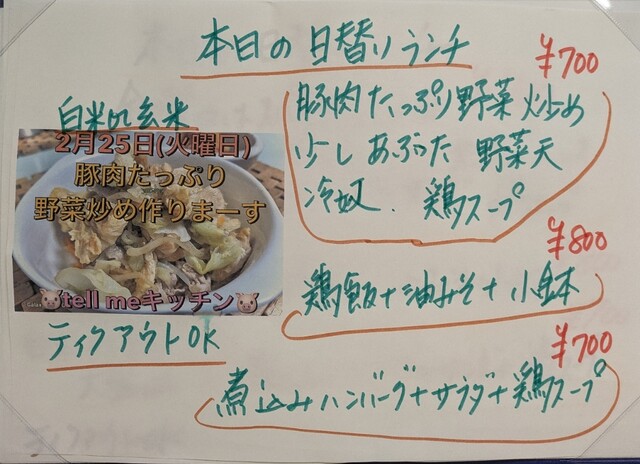 本日の日替りランチ
¥700
豚肉たっぷり野菜炒め
少しあぶった 野菜天
冷奴、鶏スープ
白米or玄米
2月25日(火曜日)
豚肉たっぷり
野菜炒め作りまーす
tell meキッチン
ティクアウトOK
¥800
鶏飯+油みそ+小鉢
¥700
煮込みハンバーグ+サラダ+鶏スープ